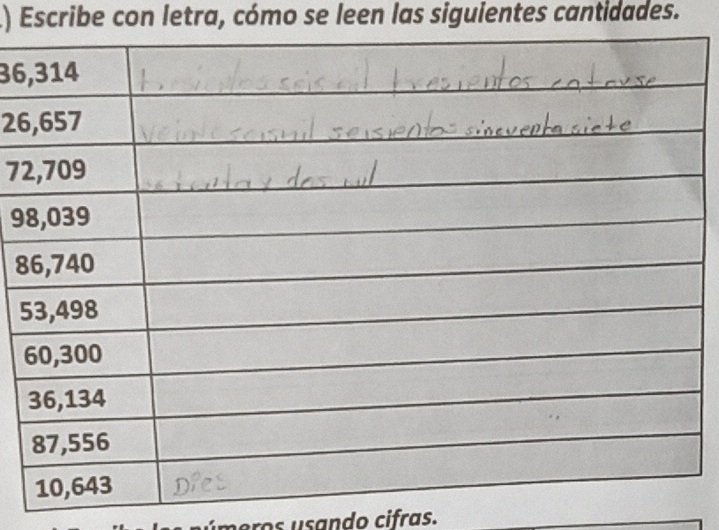 .) Escribe con letra, cómo se leen las siguientes cantidades.
36,314 seis mil tresientos catorse
26,657 seismil seisientos sincuenta siete
72,709 y dos mil
98,039
86,740
53,498
60,300
36,134
87,556
10,643 Dies
números usando cifras.